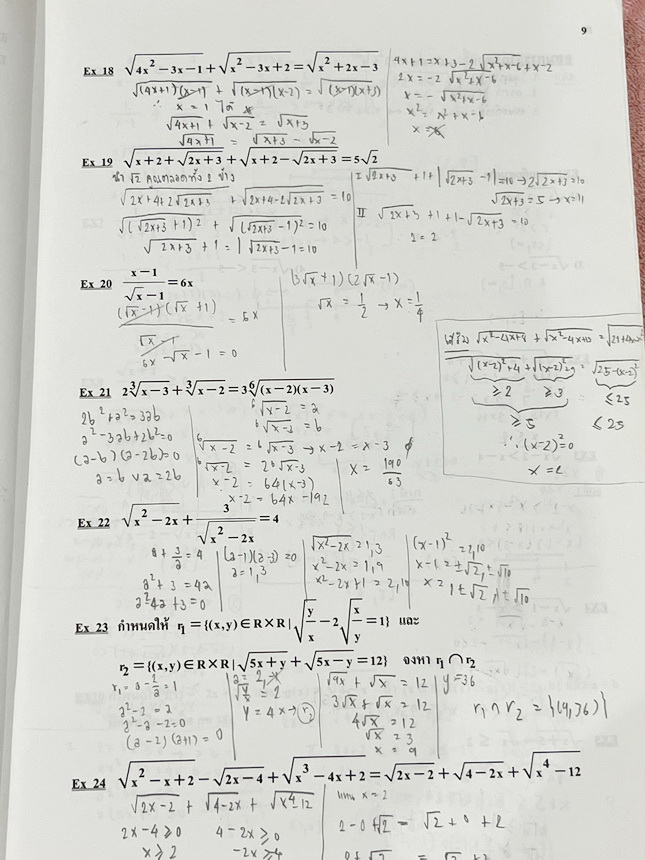 9
Ex 18 √(4x² − 3x − 1) + √(x² − 3x + 2) = √(x² + 2x − 3)
√((4x+1)(x−1)) + √((x−1)(x−2)) = √((x−1)(x+3))
∴ x = 1 ได้
√(4x+1) + √(x−2) = √(x+3)
√(4x+1) = √(x+3) − √(x−2)
4x+1 = x+3−2√(x²+x−6)+x−2
2x = −2√(x²+x−6)
x = −√(x²+x−6)
x² = x²+x−6
Ex 19 √(x + 2 + √(2x + 3)) + √(x + 2 − √(2x + 3)) = 5√2
นำ √2 คูณตลอดทั้ง 2 ข้าง
√(2x+4+2√(2x+3)) + √(2x+4−2√(2x+3)) = 10
√((√(2x+3) + 1)²) + √((√(2x+3) − 1)²) = 10
√(2x+3) + 1 = |√(2x+3) − 1| = 10
I √(2x+3) + 1 + |√(2x+3) − 1| = 10 → 2√(2x+3) = 10
√(2x+3) = 5 → x = 11
II √(2x+3) + 1 + 1 − √(2x+3) = 10
2 = 2
Ex 20 (x − 1)/(√x − 1) = 6x
(√x −1)(√x +1)/(√x −1) = 6x
6x − √x − 1 = 0
(3√x + 1)(2√x − 1)
√x = 1/2 → x = 1/4
เสริม √(x²−4x+8) + √(x²−4x+13) = √(21+4x−x²)
√((x−2)²+4) + √((x−2)²+9) = √(25−(x−2)²)
≥ 2 ≥ 3 ≤ 25
≥ 5 ≤ 25
∴ (x−2)² = 0
x = 2
Ex 21 2∛(x − 3) + ∛(x − 2) = 3⁶√((x − 2)(x − 3))
2b² + a² = 3ab
a² − 3ab + 2b² = 0
(a−b)(a−2b) = 0
a = b ∨ a = 2b
⁶√(x−2) = a
⁶√(x−3) = b
⁶√(x−2) = ⁶√(x−3) → x−2 = x−3 ∅
⁶√(x−2) = 2⁶√(x−3)
x−2 = 64(x−3)
x−2 = 64x − 192
x = 190/63
Ex 22 √(x² − 2x) + 3/√(x² − 2x) = 4
a + 3/a = 4
a² + 3 = 4a
a² 4a + 3 = 0
(a−1)(a−3) = 0
a = 1, 3
√(x²−2x) = 1, 3
x²−2x = 1, 9
x²−2x+1 = 2, 10
(x−1)² = 2, 10
x−1 = ±√2, ±√10
x = 1±√2, 1±√10
Ex 23 กำหนดให้ r₁ = {(x,y) ∈ R×R | √(y/x) − 2√(x/y) = 1} และ
r₂ = {(x,y) ∈ R×R | √(5x + y) + √(5x − y) = 12} จงหา r₁ ∩ r₂
r₁ = a − 2/a = 1
a² − 2 = a
a² − a − 2 = 0
(a−2)(a+1) = 0
a = 2, −1
√(y/x) = 2
y = 4x → r₂
√(9x) + √x = 12
3√x + √x = 12
4√x = 12
√x = 3
x = 9
y = 36
r₁ ∩ r₂ = {(9,36)}
Ex 24 √(x² − x + 2) − √(2x − 4) + √(x³ − 4x + 2) = √(2x − 2) + √(4 − 2x) + √(x⁴ − 12)
√(2x−2) + √(4−2x) + √(x⁴−12)
2x − 4 ≥ 0 4 − 2x ≥ 0
x ≥ 2 −2x ≥ 4
แทน x = 2
2 − 0 + √2 = √2 + 0 + 2